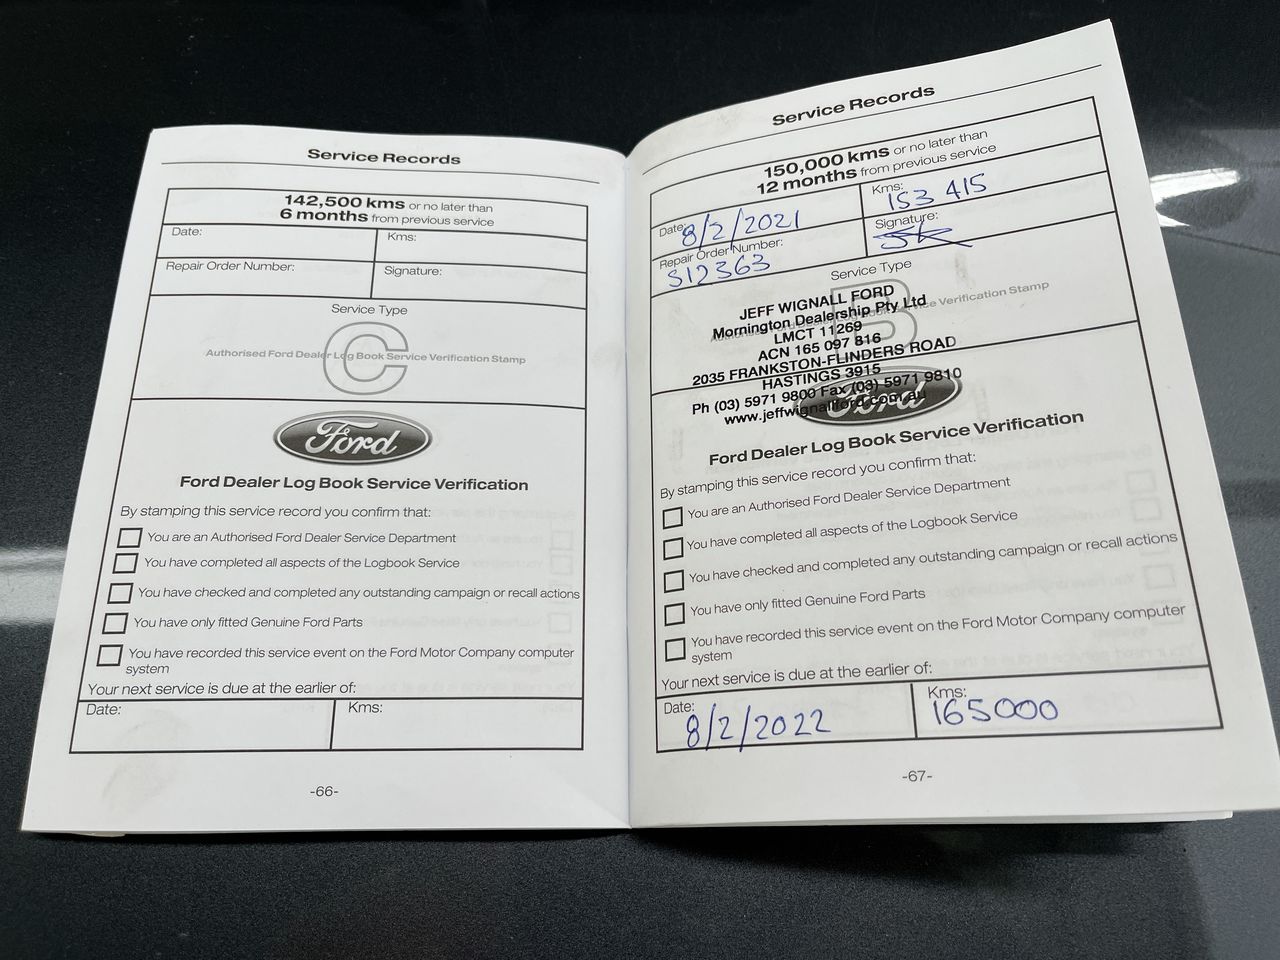 Service Records
142,500 kms or no later than
6 months from previous service
Date:
Kms:
Repair Order Number:
Signature:
Service Type
C
Authorised Ford Dealer Log Book Service Verification Stamp
Ford
Ford Dealer Log Book Service Verification
By stamping this service record you confirm that:
You are an Authorised Ford Dealer Service Department
You have completed all aspects of the Logbook Service
You have checked and completed any outstanding campaign or recall actions
You have only fitted Genuine Ford Parts
You have recorded this service event on the Ford Motor Company computer
system
Your next service is due at the earlier of:
Date:
Kms:
-66-
Service Records
150,000 kms or no later than
12 months from previous service
Date: 8/2/2021
Kms: 153 415
Repair Order Number:
S12363
Signature:
Service Type
B
JEFF WIGNALL FORD
Mornington Dealership Pty Ltd
Authorised Ford Dealer Log Book Service Verification Stamp
LMCT 11269
ACN 165 097 816
2035 FRANKSTON-FLINDERS ROAD
HASTINGS 3915
Ph (03) 5971 9800 Fax (03) 5971 9810
www.jeffwignallford.com.au
Ford
Ford Dealer Log Book Service Verification
By stamping this service record you confirm that:
You are an Authorised Ford Dealer Service Department
You have completed all aspects of the Logbook Service
You have checked and completed any outstanding campaign or recall actions
You have only fitted Genuine Ford Parts
You have recorded this service event on the Ford Motor Company computer
system
Your next service is due at the earlier of:
Date: 8/2/2022
Kms: 165000
-67-